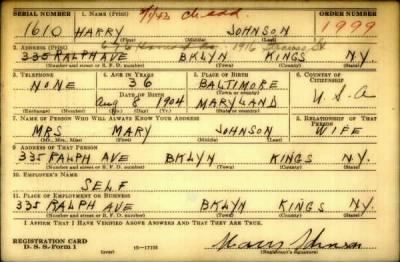 SERIAL NUMBER 1. NAME (Print) ORDER NUMBER
1610 HARRY JOHNSON 1999
(First) (Middle) (Last)
2. ADDRESS (Print)
335 RALPH AVE BKLYN KINGS N.Y.
(Number and street or R. F. D. number) (Town) (County) (State)
3. TELEPHONE 4. AGE IN YEARS 5. PLACE OF BIRTH 6. COUNTRY OF CITIZENSHIP
NONE 36 BALTIMORE
DATE OF BIRTH (Town or county)
Aug 8 1904 MARYLAND U.S.A
(Exchange) (Number) (Mo.) (Day) (Yr.) (State or country)
7. NAME OF PERSON WHO WILL ALWAYS KNOW YOUR ADDRESS 8. RELATIONSHIP OF THAT PERSON
MRS MARY JOHNSON WIFE
(Mr., Mrs., Miss) (First) (Middle) (Last)
9. ADDRESS OF THAT PERSON
335 RALPH AVE BKLYN KINGS N.Y.
(Number and street or R. F. D. number) (Town) (County) (State)
10. EMPLOYER'S NAME
SELF
11. PLACE OF EMPLOYMENT OR BUSINESS
335 RALPH AVE BKLYN KINGS N.Y.
(Number and street or R. F. D. number) (Town) (County) (State)
I AFFIRM THAT I HAVE VERIFIED ABOVE ANSWERS AND THAT THEY ARE TRUE.
REGISTRATION CARD
D. S. S. Form 1 (over) 16-17105 Harry Johnson
(Registrant's signature)